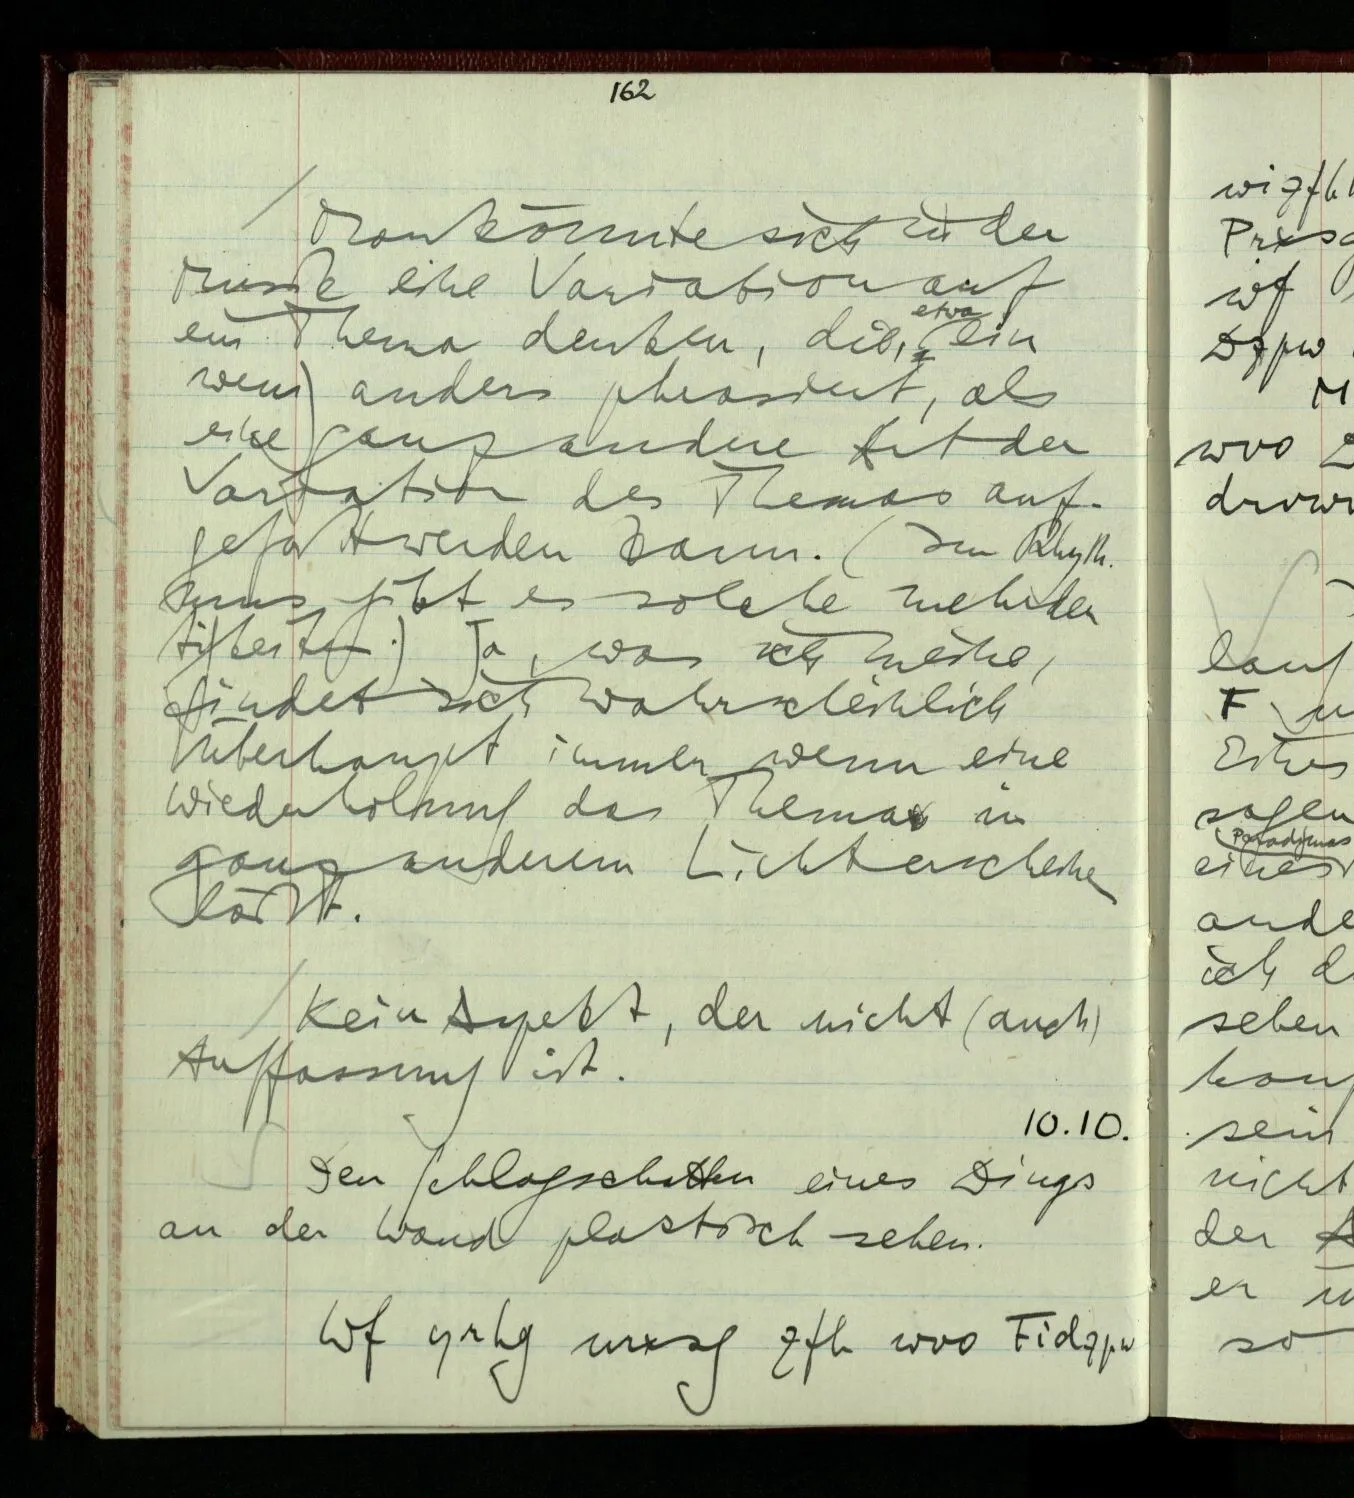 162
Man könnte sich in der
Musik eine Variation auf
ein Thema denken, die, etwa ein
wenig anders phrasiert, als
eine ganz andere Art der
Variation des Themas auf-
gefaßt werden kann. (Im Rhyth-
mus gibt es solche Mehrdeu-
tigkeiten.) Ja, was ich meine,
findet sich wahrscheinlich
überhaupt immer, wenn eine
Wiederholung das Thema in
ganz anderem Licht erscheinen
läßt.
Kein Aspekt, der nicht (auch)
Auffassung ist.
10.10.
Den Schlagschatten eines Dings
an der Wand plastisch sehen.
Wf yrhg nrxsg zfh wvo Fidzpw
wvo
lauf
F
sagen
Paradigmas
eines
ande
ich
sehen
sein
nicht
der
er
so